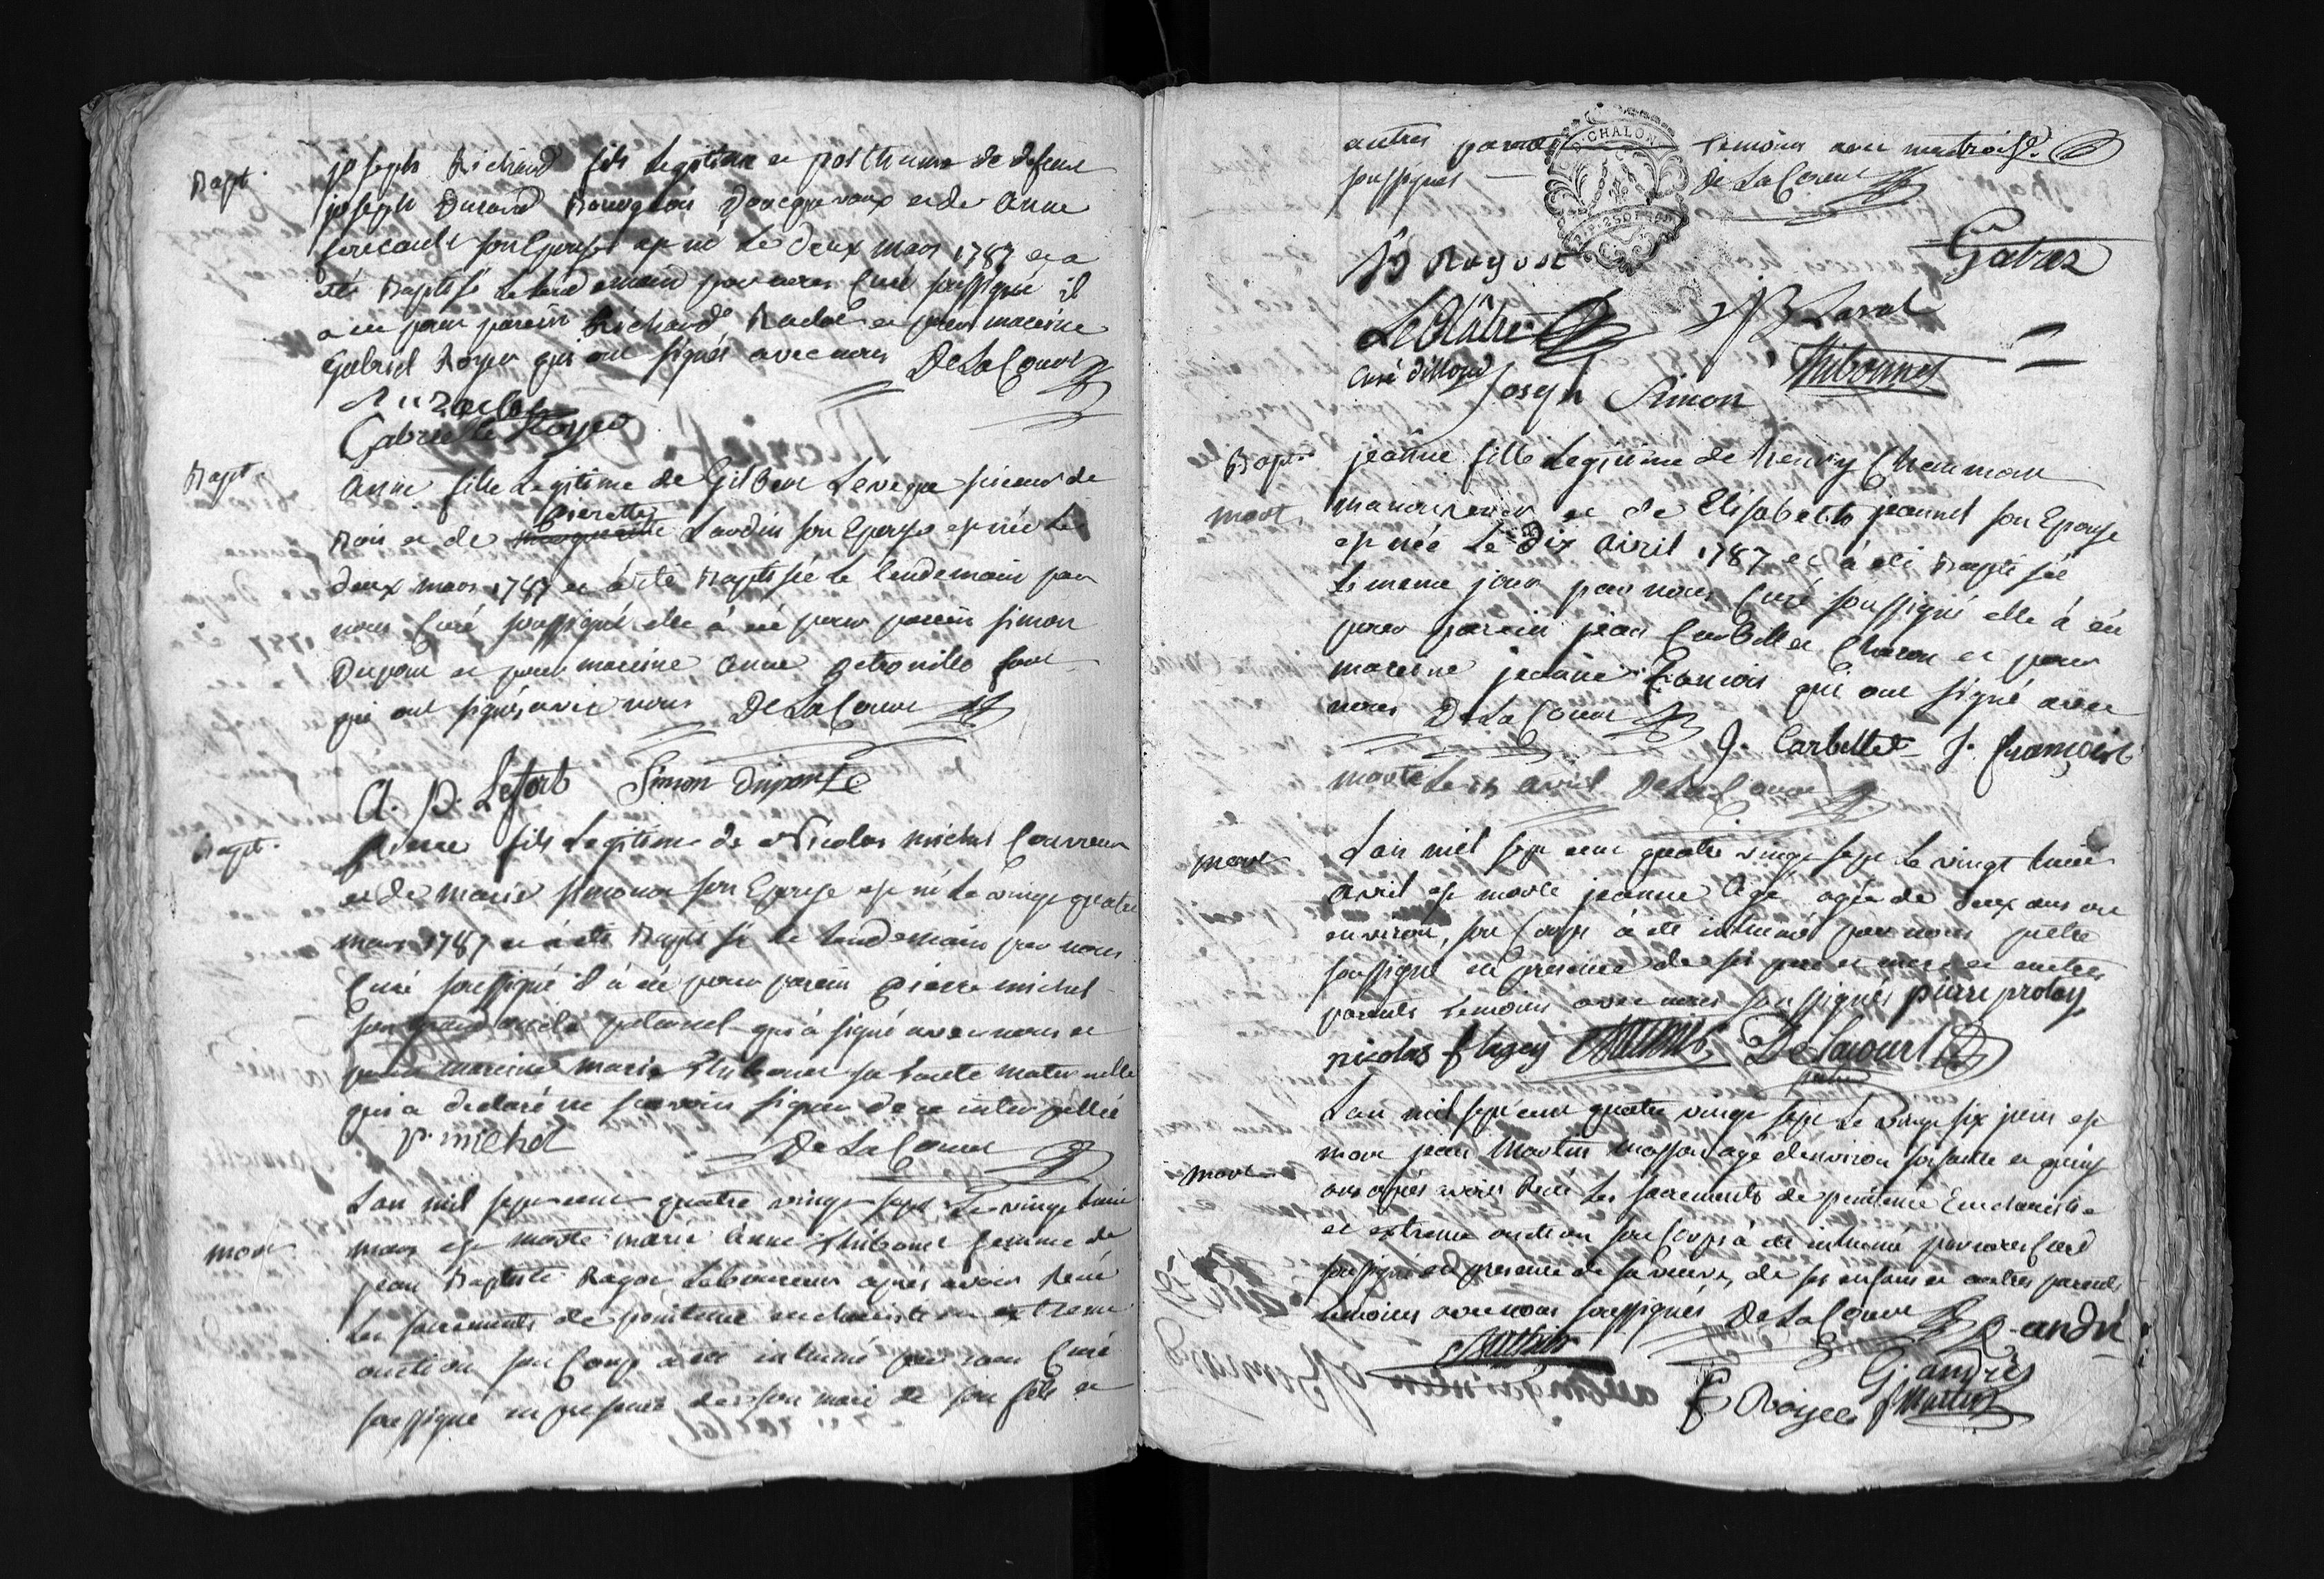 Bapt.
joseph Richard fils Legitime et posthume de defunt
joseph Durand Bourgeois et de Anne
son Epouse est né Le deux mars 1787 et a
été Baptisé Le lendemain par nous Curé soussigné il
a eu pour parein Richard et pour mareine
Gabriel Royer qui ont signés avec nous DeLaCour
Gabrielle Royer
Bapt.
Anne fille Legitime de Gilbert Leveque de
pierette
Bois et de Laudin son Epouse est née Le
deux mars 1787 et à été Baptisée le lendemain par
nous Curé soussigné elle à eu pour parein simon
Dupont et pour mareine Anne petronille
qui ont signés avec nous DeLaCour
A. P. Lefort Simon Duponte
Bapt.
fils Legitime de Nicolas michel Couvreur
et de marie simonot son Epouse est né Le vingt quatre
mars 1787 et à été Baptisé le lendemain par nous
Curé soussigné il à eu pour parein pierre michel
son grand oncle paternel qui à signé avec nous et
pour mareine marie Thibonet sa tante maternelle
qui a declaré ne savoir signer de ce interpellée
p. michel DeLaCour
mort
Lan mil sept cent quatre vingt sept Le vingt huit
mars est morte marie Anne Thibonet femme de
jean Baptiste Ragot Laboureur après avoir Recu
Les sacrements de penitence eucharistie et extreme
onction son Corps a été inhumé par nous Curé
soussigné en presence de son mari de son fils et
autres parents temoins avec
soussignés DeLaCour
CHALON
Gatrez
JB Ragost
JB Laral
Thibonnet
Joseph Simon
Bapt.
mort
jeanne fille Legitime de henry Chaumont
manouvrier et de Elisabeth jeannel son Epouse
est née Le Dix Avril 1787 et à été Baptisée
Le meme jour par nous Curé soussigné elle à eu
pour parein jean Corbellet Charon et pour
mareine jeanne francois qui ont signé avec
nous DeLaCour
J. Corbellet J. francoise
morte Le avril DeLaCour
mort
Lan mil sept cent quatre vingt sept Le vingt huit
avril est morte jeanne agée de deux ans ou
environ, son Corps à été inhumé par nous pretre
soussigné en presence de ses pere et mere et autres
parents temoins avec nous soussignés pierre protoy
nicolas flagey DeLacourt
pretre
mort
Lan mil sept cent quatre vingt sept Le vingt six juin est
mort jean Martin masson agé denviron soixante et quinze
ans apres avoir Recu Les sacrements de penitence Eucharistie
et extreme onction son Corps à été inhumé par nous Curé
soussigné en presence de sa veuve, de ses enfans et autres parents
temoins avec nous soussignés DeLaCour
andré
G. andriés
Royer Martin